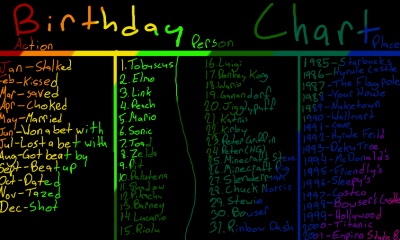 Birthday Chart
Action
Person
Place
Jan - Stalked
Feb - Kissed
Mar - saved
Apr - Choked
May - Married
Jun - Won a bet with
Jul - Lost a bet with
Aug - Got beat by
Sept - Beat up
Oct - Dated
Nov - Tazed
Dec - Shot
1. Tobuscus
2. Elmo
3. Link
4. Peach
5. Mario
6. Sonic
7. Toad
8. Zelda
9. Pit
10. Palutena
11. Shadow
12. Pikachu
13. Barney
14. Lucario
15. Riolu
16. Luigi
17. Donkey Kong
18. Wario
19. Ganandorf
20. Jigglypuff
21. Katnis
22. Kirby
23. Peter Griffin
24. Peter
25. Minecraft Steve
26. Minecraft Pig
27. Slenderman
28. Chuck Norris
29. Stewie
30. Bowser
31. Rainbow Dash
1985 - Starbucks
1986 - Hyrule Castle
1987 - The Flagpole
1988 - Your House
1989 - Nuketown
1990 - Wallmart
1991 - Cave
1992 - Field
1993 - Deku Tree
1994 - McDonald's
1995 - Friendly's
1996 -
1997 - Costco
1998 - Bowser's Castle
1999 - Hollywood
2000 - Titanic
2001 - Empire State